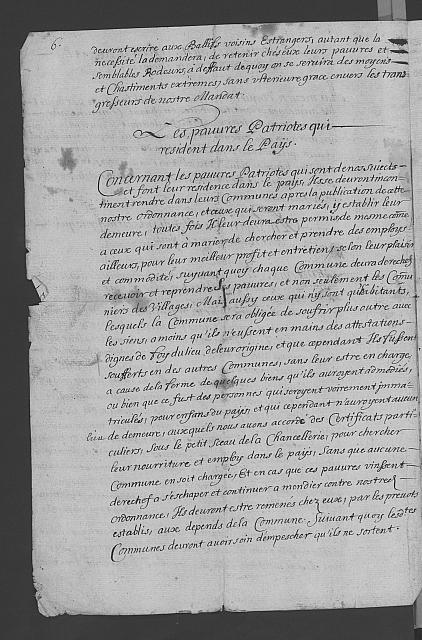 6.
devront escrire aux Ballifs voisins Estrangers, autant que la
necessité la demandera, de retenir chés eux leurs pauvres et
semblables Rodeurs, à deffaut dequoy on se servira des moyens
et Chastiments extrémes, sans ulterieure grace envers les trans
gresseurs de nostre Mandat.
Les pauvres Patriotes qui
resident dans le Pays.
Concernant les pauvres Patriotes qui sont de nos sujects
et font leur residence dans le pays, Ils se devront incon
tinent rendre dans leurs Communes apres la publication de cette
nostre ordonnance, et ceux qui seront mariés, y establir leur
demeure, toutes fois Il leur devra estre permis de mesme côme
a ceux qui sont à marier, de chercher et prendre des employs
ailleurs, pour leur meilleur profit et entretiens selon leur plaisir
et commodité, suyvant quoy chaque Commune devra derechef
recevoir et reprendre ses pauvres, et non seulement les Comu
niers des Villages, Mais aussy ceux qui n'y sont qu'habitants,
lesquels la Commune sera obligée de souffrir plus outre aux
les siens, a moins qu'ils n'eussent en mains des attestations
dignes de foy du lieu de leur origine, et que cependant Ils fussent
soufferts en des autres Communes, sans leur estre en charge,
a cause de la ferme de quelques biens qu'ils auroyent admodiés,
ou bien que ce fust des personnes qui seroyent voirement imma
triculés, pour enfans du pays, et qui cependant n'auroyent aucun
lieu de demeure, auxquels nous avons accordé des Certificats parti
culiers, sous le petit Sceau de la Chancellerie, pour chercher
leur nourriture et employ dans le pays, sans que aucune
Commune en soit chargée, Et en cas que ces pauvres vinssent
derechef a s'eschaper et continuer a mendier contre nostre
ordonnance, Ils devront estre remenés chez eux, par les prevots
establis, aux depends de la Commune. Suivant quoy lesdtes
Communes devront avoir soin d'empescher qu'ils ne sortent.